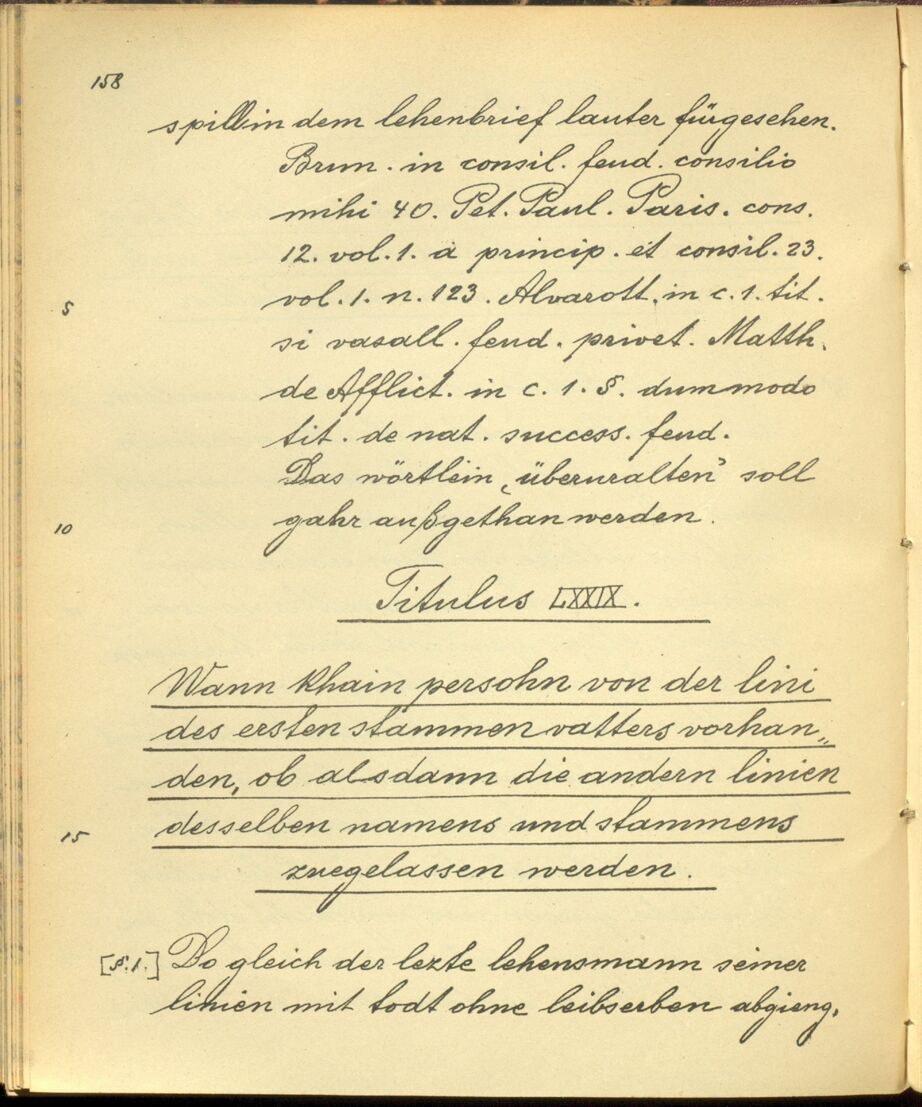 158
spillin dem lehenbrief lauter fürgesehen.
Brun. in consil. feud. consilio
mihi 40. Pet. Paul. Paris. cons.
12. vol. 1. a princip. et consil. 23.
5 vol. 1. n. 123. Alvarott. in c. 1. tit.
si vasall. feud. privet. Matth.
de Afflict. in c. 1. §. dummmodo
tit. de nat. success. feud.
Das wörtlein „überuralten” soll
10 gahr außgethan werden.
Titulus LXXIX.
Wann khain persohn von der lini
des ersten stammen vatters vorhan„
den, ob alsdann die andern linien
15 desselben namens und stammens
zuegelassen werden.
[§. 1.] Do gleich der lezte lehensmann seiner
linien mit todt ohne leibserben abgieng,